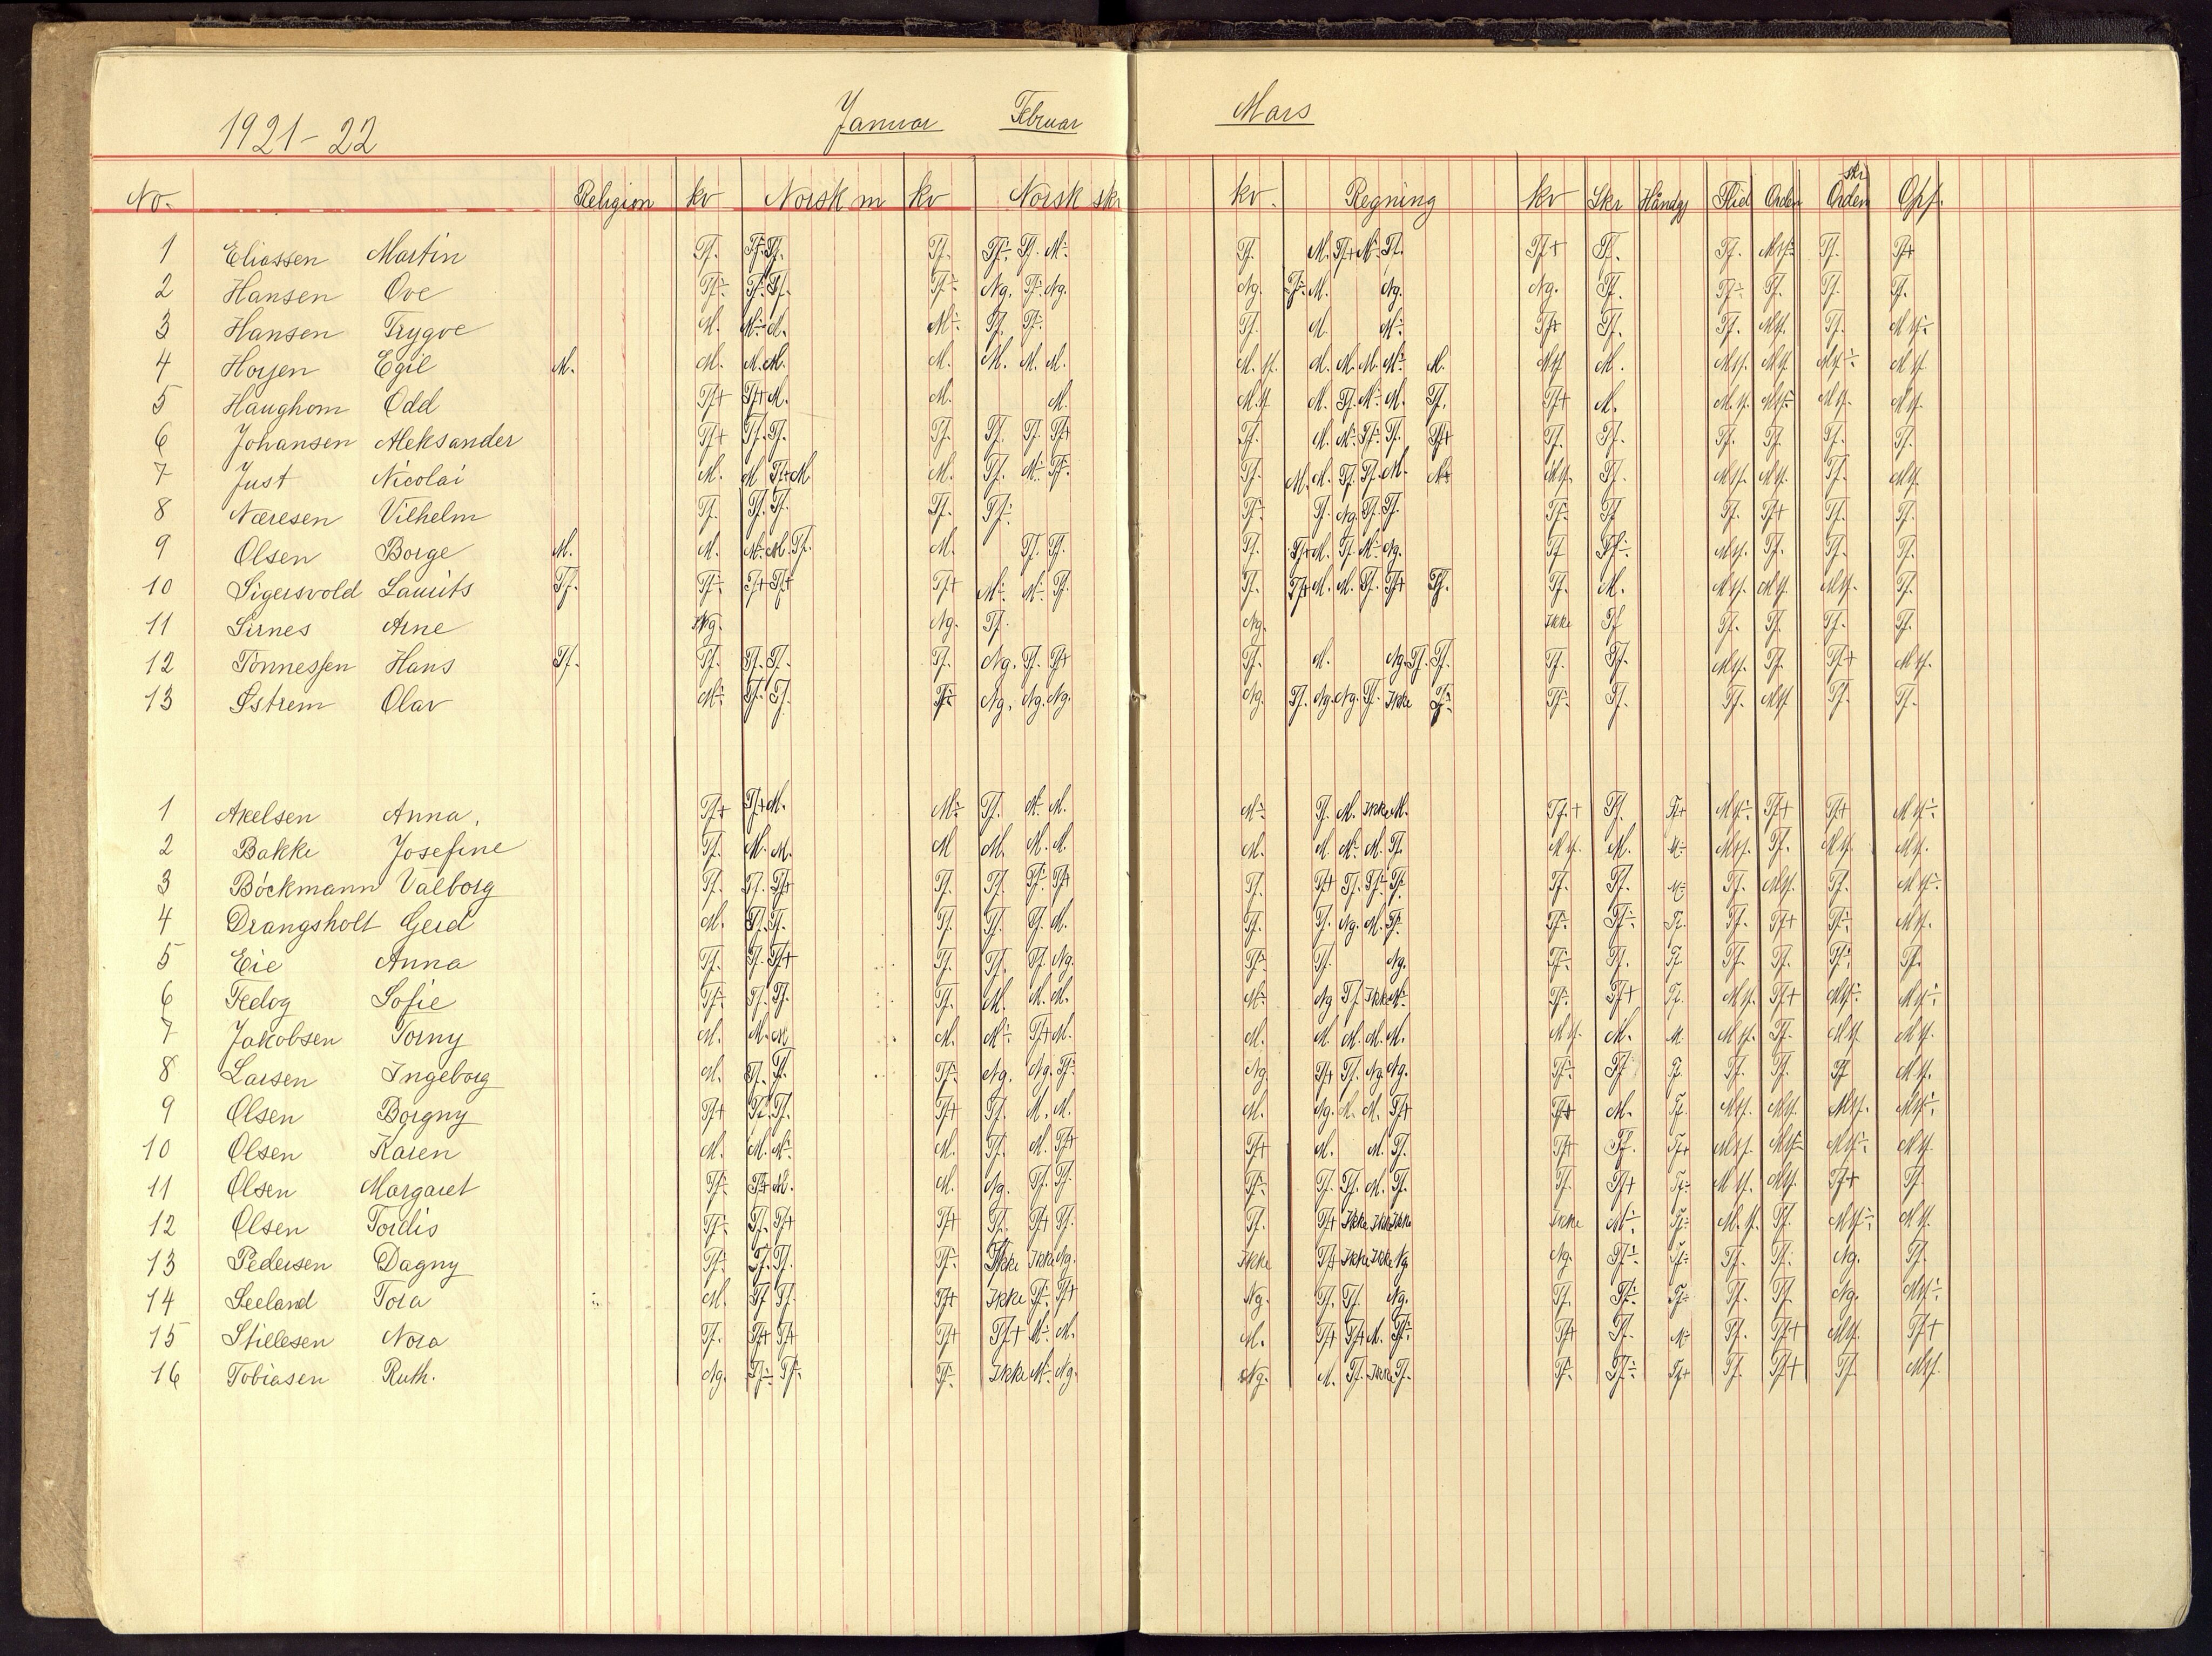 1921-22 Januar Februar Mars
No. Religion kv Norsk m kv Norsk skr kv. Regning kv Skr Håndgj Flid Orden Orden skr Opf.
1 Eliassen Martin Tf. Tf÷ Tf. Tf. Tf÷ Tf. M÷ Tf. M. Tf+ M÷ Tf. Tf+ Tf. Tf. Mtf÷ Tf. Tf+
2 Hansen Ove Tf÷ Tf÷ Tf. Tf÷ Ng. Tf÷ Ng. Ng. Tf÷ M. Ng. Ng. Tf. Tf÷ Tf. Tf. Tf.
3 Hansen Trygve M. M÷ M. M÷ Tf. Tf÷ Tf. M. M÷ Tf+ Tf. Tf. Mtf. Tf. Mtf÷
4 Egil M. M. M. M. M. M. M. M. M.tf. M. M. M. M÷ M. Mtf M. Mtf. Mtf Mtf÷ Mtf
5 Haughom Odd Tf+ Tf+ M. M. M. M.tf. M. Tf. M÷ M. Tf. Tf+ M. M.tf. Mtf÷ Mtf. Mtf.
6 Johansen Aleksander Tf+ Tf. Tf. Tf. Tf. Tf. Tf+ Tf. M. M÷ Tf÷ Tf. Tf+ Tf. Tf. Tf. Tf. Tf. Tf.
7 Just Nicolai M. M Tf+ M M. Tf. M÷ Tf÷ Tf. M. M. Tf. Tf. M. Mtf. Tf. Mtf. Mtf. Tf. Mtf.
8 Næresen Vilhelm Tf. Tf. Tf. Tf. Tf÷ Tf÷ Tf. Ng. Tf. Tf. Tf÷ Tf Tf. Tf+ Tf. Tf.
9 Olsen Borge M. M. M÷ M. Tf. M. Tf. Tf. Tf. Tf+ M. Tf. M÷ Ng. Tf Tf÷ Mtf. Tf. Tf. Tf.
10 Sigersvold Laurits Tf. Tf÷ Tf+ Tf+ Tf+ M÷ M÷ Tf. Tf. Tf+ M. M. Tf. Tf+ Tf. Tf. M. Mtf. Mtf Mtf. Tf.
11 Sirnes Arne Ng. Ng. Tf. Ng. Ikke Tf Tf. Tf. Tf. Tf.
12 Tønnessen Hans Tf. Tf. Tf. Tf. Tf. Ng. Tf. Tf+ Tf. M. Ng. Tf. Tf. Tf. Tf. Mtf. Tf. Tf+ Mtf.
13 Østrem Olav M÷ Tf. Tf. Tf÷ Ng. Ng. Ng. Ng. Tf. Ng. Ng. Tf. Ikke Tf÷ Tf÷ Tf. Tf. Mtf Tf. Tf.
1 Akelsen Anna. Tf+ Tf+ M. M÷ Tf. M. M. M÷ Tf. M. Ikke M. Tf.+ Tf. Tf+ Mtf÷ Tf+ Tf+ Mtf÷
2 Bakke Josefine Tf. M. M. M M. M. M. M. M. M÷ M. Tf. Mtf. M. M÷ Mtf. Tf. Mtf. Mtf.
3 Böckmann Valborg Tf. Tf. Tf+ Tf. Tf. Tf÷ Tf+ Tf. Tf+ Tf. Tf÷ Tf. Tf. Tf. M÷ Tf. Mtf. Tf. Mtf÷
4 Drangsholt Gerd M. Tf. Tf. Tf. Tf. Tf. M. Tf. Tf. Ng. M. Tf÷ Tf÷ Tf÷ Tf. Tf. Tf+ Tf÷ Mtf.
5 Eie Anna Tf. Tf. Tf+ Tf. Tf. Tf. Ng. Tf÷ Tf. Ng. Tf÷ Tf. Tf. Tf. Tf. Tf÷ Tf.
6 Fedog Sofie Tf÷ Tf. Tf. Tf. M. M. M. M÷ Ng Tf. Ikke M÷ Tf÷ Tf+ Tf. Mtf. Tf+ Mtf÷ Mtf÷
7 Jakobsen Torny M. M. M M. M÷ Tf+ M. M. M. M. M. M. Mtf. M. M. Mtf. Tf. Mtf Mtf.
8 Larsen Ingeborg M. Tf. Tf. Tf÷ Ng. Ng. Tf÷ Ng. Tf+ Tf. Ng. Ng. Tf÷ Tf Tf. Tf. Tf. Tf Mtf.
9 Olsen Borgny Tf+ Tf. Tf. Tf+ Tf. M. M. M. Ng. M. M. Tf+ Tf+ M. Tf. Mtf. Mtf. Mtf. Mtf÷
10 Olsen Karen M. M. M÷ M. Tf. M. Tf+ Tf+ M. M. Tf. Tf+ Tf. Tf+ Mtf. Mtf÷ Mtf÷ Mtf.
11 Olsen Margaret Tf÷ Tf+ M. M. Ng. Tf. Tf. Tf÷ Tf. Tf. M. Tf. Tf. Tf+ Tf÷ Mtf. Mtf. Tf+ Tf.
12 Olsen Tordis Tf÷ Tf. Tf+ Tf+ Tf. Tf+ Tf. Tf. Tf+ Ikke Ikke Ikke Ikke M÷ Tf÷ M.tf. Tf. Mtf÷ Mtf.
13 Pedersen Dagny Tf÷ Tf. Tf. Tf÷ Ikke Ikke Ng. Ikke Tf+ Ikke Ikke Ng. Ng. Tf÷ Tf÷ Tf. Tf. Ng. Tf.
14 Seeland Tora M. Tf Tf. Tf+ Ikke Tf÷ Tf+ Ng. Tf. Tf. Ng. Tf. Tf÷ Tf÷ Tf. Tf. Ng. Mtf÷
15 Stillesen Nora Tf. Tf+ Tf+ Tf+ Tf+ M÷ M. M. Tf+ Tf+ M. Tf÷ Tf+ Tf. M÷ Tf. Tf+ Mtf. Tf+
16 Tobiasen Ruth. Ng. Tf÷ Tf÷ Tf÷ Ikke M÷ Ng. Ng. M. Tf. Ikke Tf. Tf÷ Tf÷ Tf+ Tf. Tf+ Tf. Mtf.